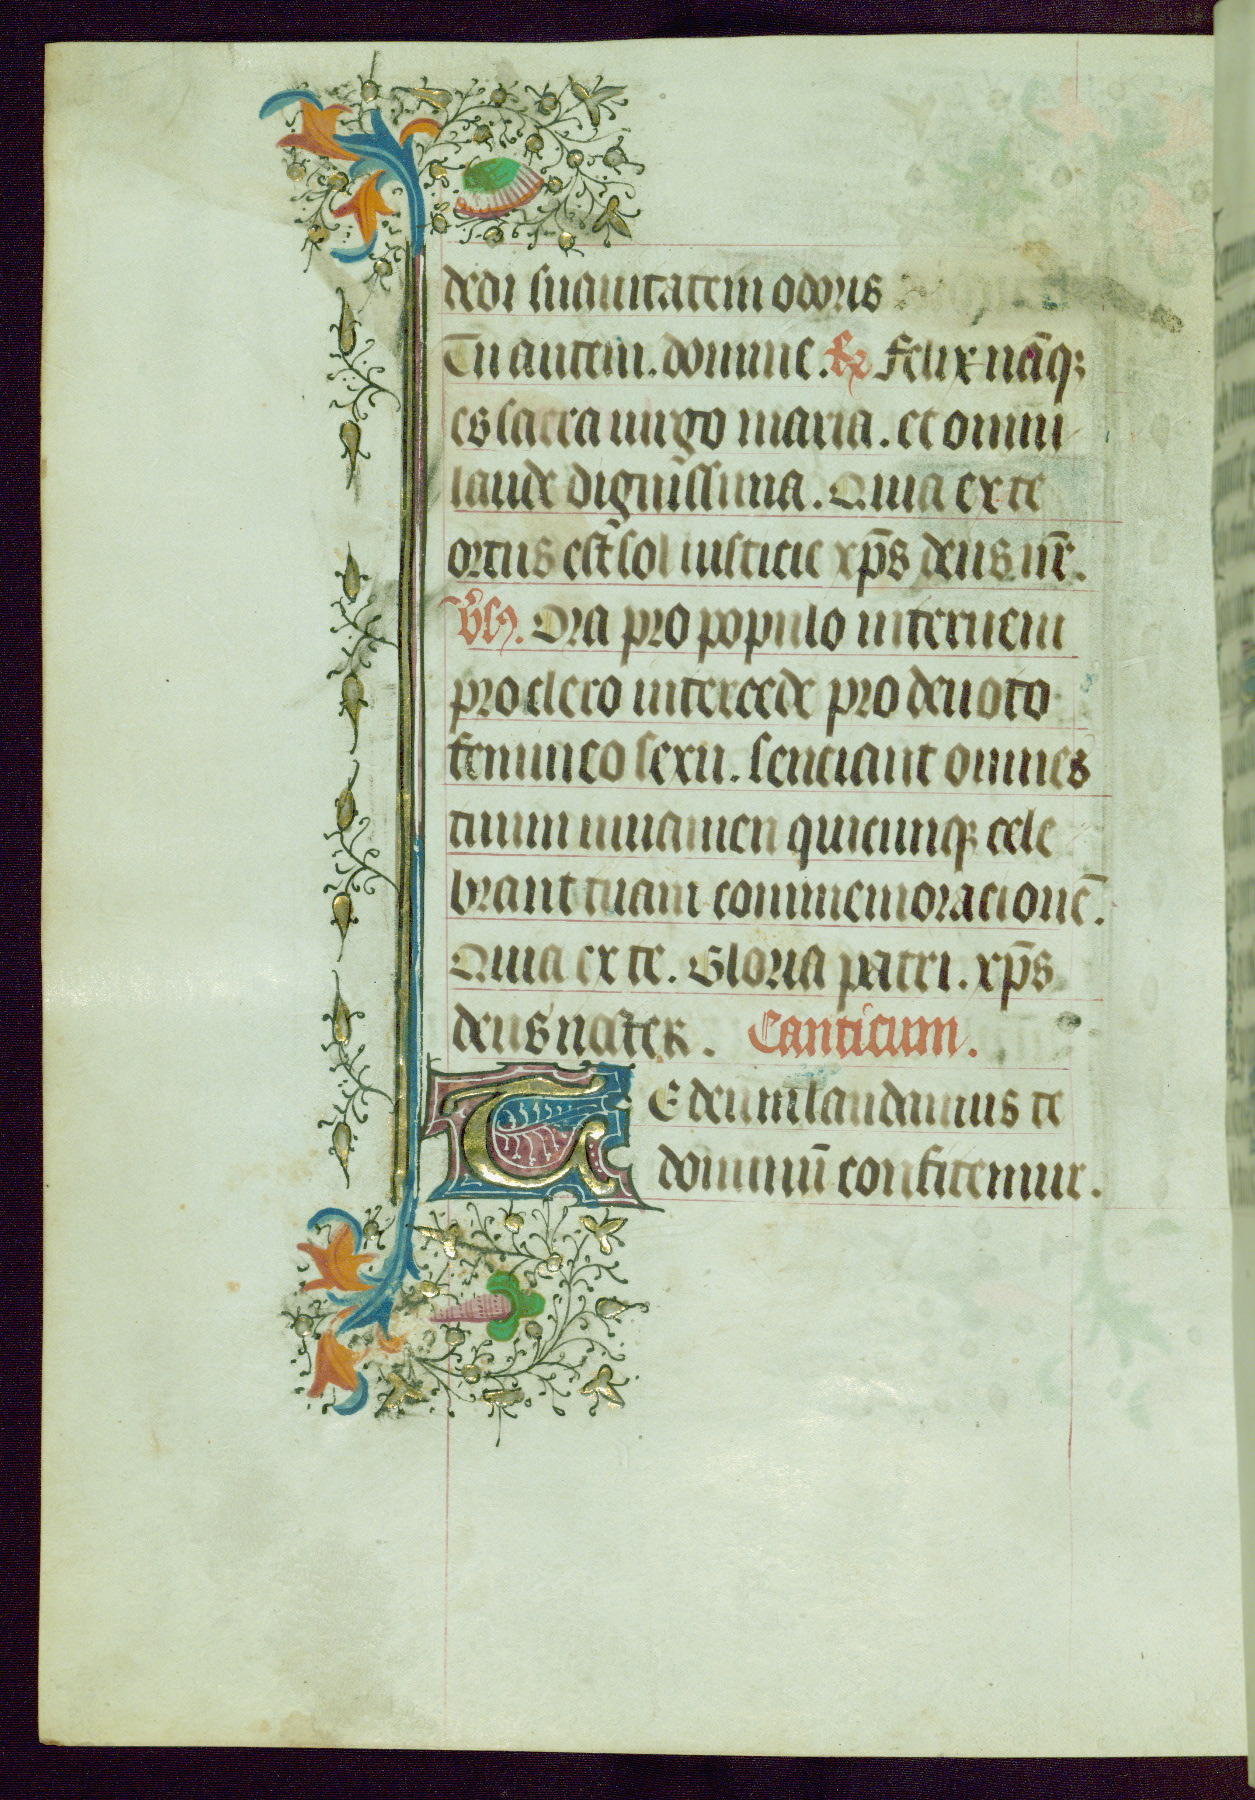 dedi suauitatem odoris
Tu autem. domine. R Felix nāq;
es sacra uirgo maria. et omni
laude dignissima. Quia ex te
ortus est sol iusticie xp̄s deus nr̄.
v̄s. Ora pro populo interueni
pro clero intercede pro deuoto
femineo sexu. senciant omnes
tuum iuuamen quicunq; cele
brant tuam commemoracionē.
Quia ex te. Gloria patri. xp̄s
deus noster. Canticum.
TE deum laudamus te
dominū confitemur.